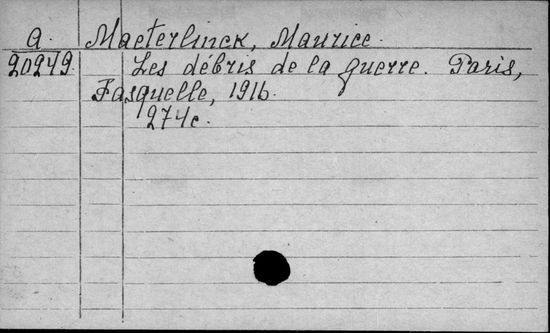 a. Maeterlinck, Maurice.
20249. Les débris de la guerre. Paris,
Fasquelle, 1916.
274c.